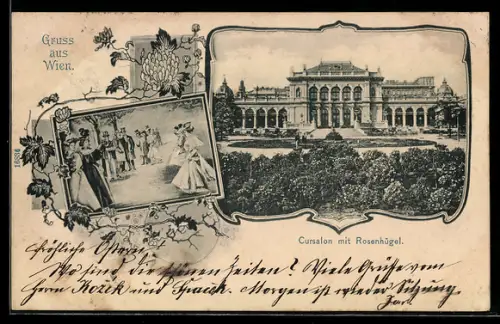 Gruss
aus
Wien.
Cursalon mit Rosenhügel.
Fröhliche Ostern
Wo sind die schönen Zeiten? Viele Grüsse vom
Herrn Kozik und. Morgen ist wieder Sitzung